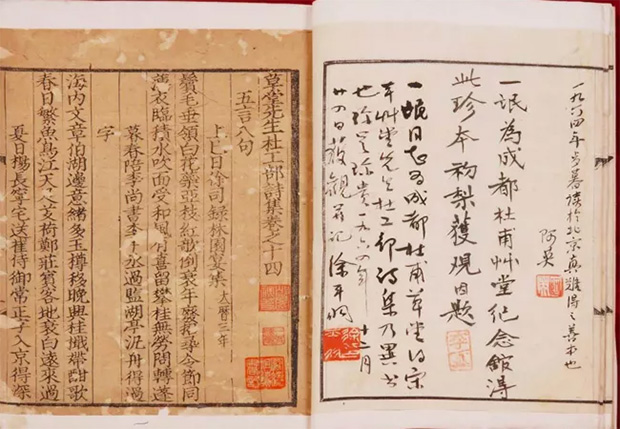 一九六四年歲暮讀於北京真難得之善本也
阿英
一氓為成都杜甫艸堂纪念館得
此珍本初梨獲观因題
一氓同志为成都杜甫草堂得宋
本艸堂先生杜工部诗集乃異书
也珍贵珍贵一九六四年十二月
廿四日获观并记徐平羽
草堂先生杜工部詩集卷之十四
五言八句
上巳日徐司録林園宴集 大曆三年
鬢毛垂領白花蘂亞枝紅欹倒衰年廢招尋令節同
薄衣臨積水吹面受和風有喜留攀桂無勞問轉蓬
暮春陪李尚書李中丞過鄭監湖亭汎舟得過
字
海內文章伯湖邊意緒多玉樽移晚興桂檝帶酣歌
春日繁魚鳥江天足芰荷鄭莊賓客地衰白遠來過
夏日楊長寧宅送崔侍御常正字入京得深